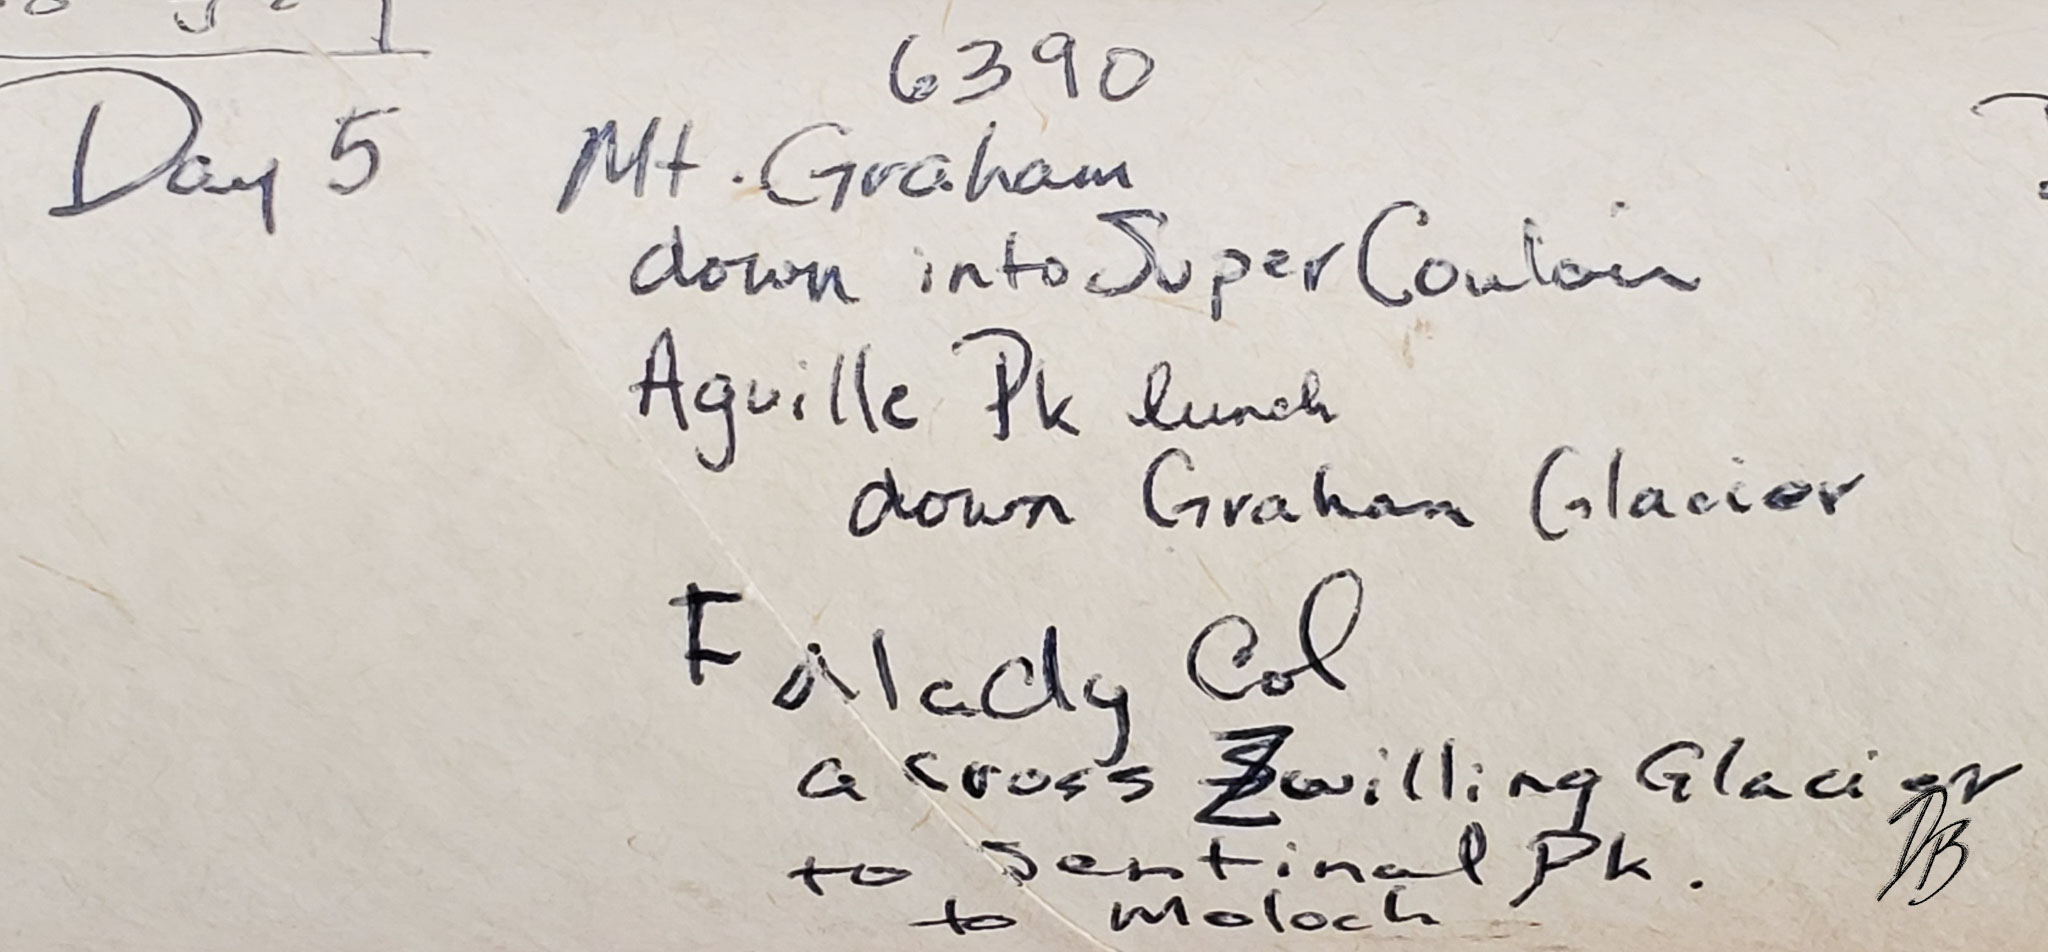 6390
Day 5 Mt. Graham
down into Super Couloir
Aguille Pk lunch
down Graham Glacier
Malady Col
across Zwilling Glacier
to Sentinal Pk.
to Moloch
DB